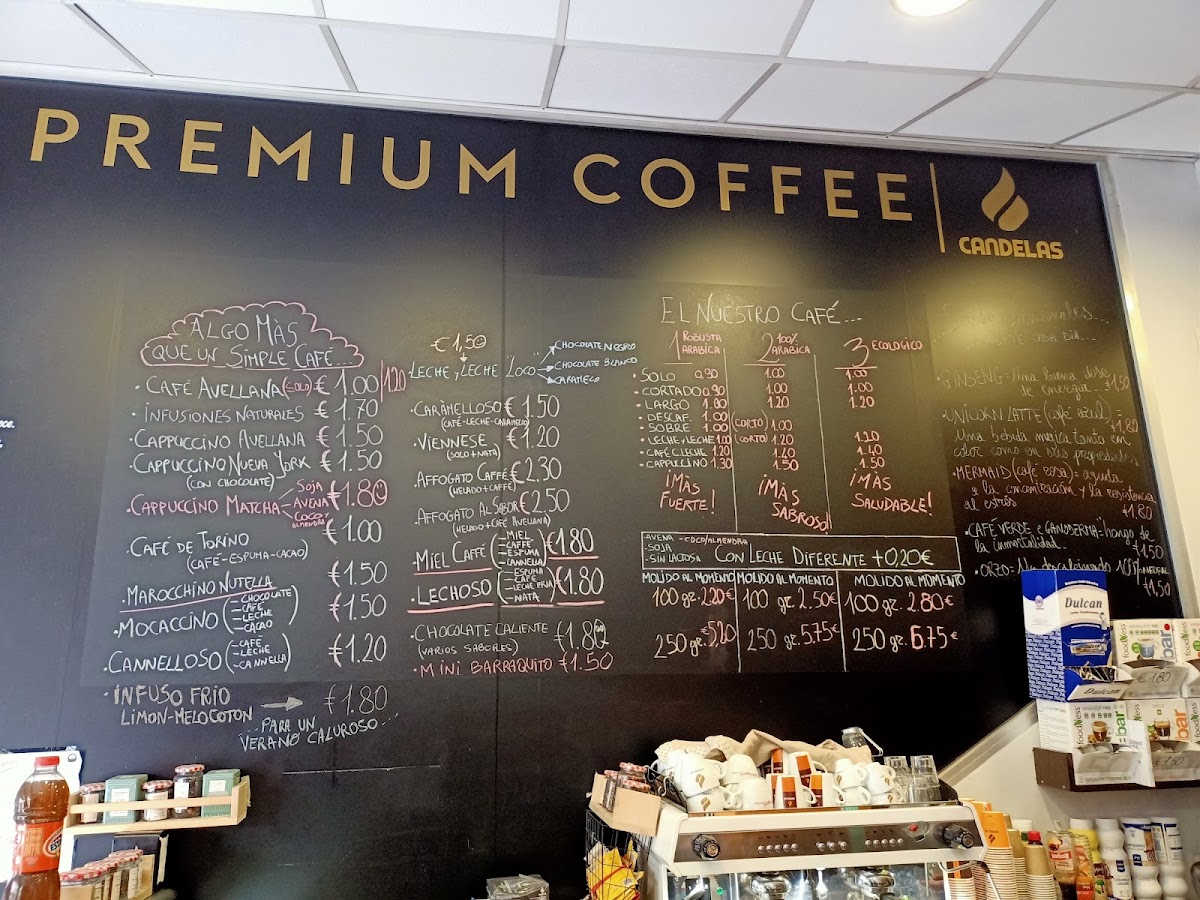 PREMIUM COFFEE
CANDELAS
ALGO MÀS
QUE UN SIMPLE CAFÉ...
·CAFÉ AVELLANA (SOLO) € 1.00 / 1.20
·INFUSIONES NATURALES € 1.70
·CAPPUCCINO AVELLANA € 1.50
·CAPPUCCINO NUEVA YORK € 1.50
(CON CHOCOLATE)
·CAPPUCCINO MATCHA €1.80
SOJA
AVENA
COCO y ALMENDRA
·CAFÉ DE TORINO €1.00
(CAFÉ-ESPUMA-CACAO)
·MAROCCHINO NUTELLA €1.50
·MOCACCINO €1.50
-CHOCOLATE
-CAFÉ
-LECHE
-CACAO
·CANNELLOSO €1.20
-CAFÉ
-LECHE
-CANNELLA
·INFUSO FRIO → €1.80
LIMON-MELOCOTON
...PARA UN
VERANO CALUROSO...
€ 1,50
LECHE y LECHE LOCO
CHOCOLATE NEGRO
CHOCOLATE BLANCO
CARAMELO
·CARÀMELLOSO € 1.50
(CAFÉ-LECHE-CARAMELLO)
·VIENNESE € 1.20
(SOLO+NATA)
·AFFOGATO CAFFÉ €2.30
(HELADO+CAFFÉ)
·AFFOGATO AL SABOR €2.50
(HELADO+CAFÉ AVELLANA)
·MIEL CAFFÉ €1.80
-MIEL
-CAFFÉ
-ESPUMA
-CANNELLA
·LECHOSO €1.80
-ESPUMA
-CAFÉ
-LECHE FRIA
-NATA
·CHOCOLATE CALIENTE €1.80
(VARIOS SABORES)
·MINI BARRAQUITO €1.50
EL NUESTRO CAFÉ...
1 ROBUSTA ARABICA
2 100% ARABICA
3 ECOLOGICO
·SOLO 0.90 1.00 1.00
·CORTADO 0.90 1.00 1.00
·LARGO 1.00 1.20 1.20
·DESCAF 1.00
·SOBRE 1.00 (CORTO) 1.00
·LECHE y LECHE 1.00 (CORTO) 1.20 1.20
·CAFÉ C LECHE 1.20 1.40 1.40
·CAPPUCCINO 1.30 1.50 1.50
¡MÀS FUERTE!
¡MÀS SABROSO!
¡MÀS SALUDABLE!
-AVENA -COCO/ALMENDRA
-SOJA
-SIN LACTOSA CON LECHE DIFERENTE +0,20€
MOLIDO AL MOMENTO MOLIDO AL MOMENTO MOLIDO AL MOMENTO
100 gr. 2.20€ 100 gr. 2.50€ 100 gr. 2.80€
250 gr. €5.20 250 gr. 5.75€ 250 gr. 6.75€
·GINSENG= Una buena dosis
de energia... €1.50
·UNICORN LATTE (café azul) =
€1,80
Una bebida magica tanto en
color como en sus propiedades
·MERMAID (café rosa) = ayuda
a la concentración y la resistencia
al estrés €1.80
·CAFÉ VERDE e GANODERMA= hongo de
la inmortalidad. €1.50
·ORZO= 100% NATURAL
€1,50
Dulcan
Dulcan
foodNess
bar
foodNess
bar
bar
€ 1,80
€ 1,50